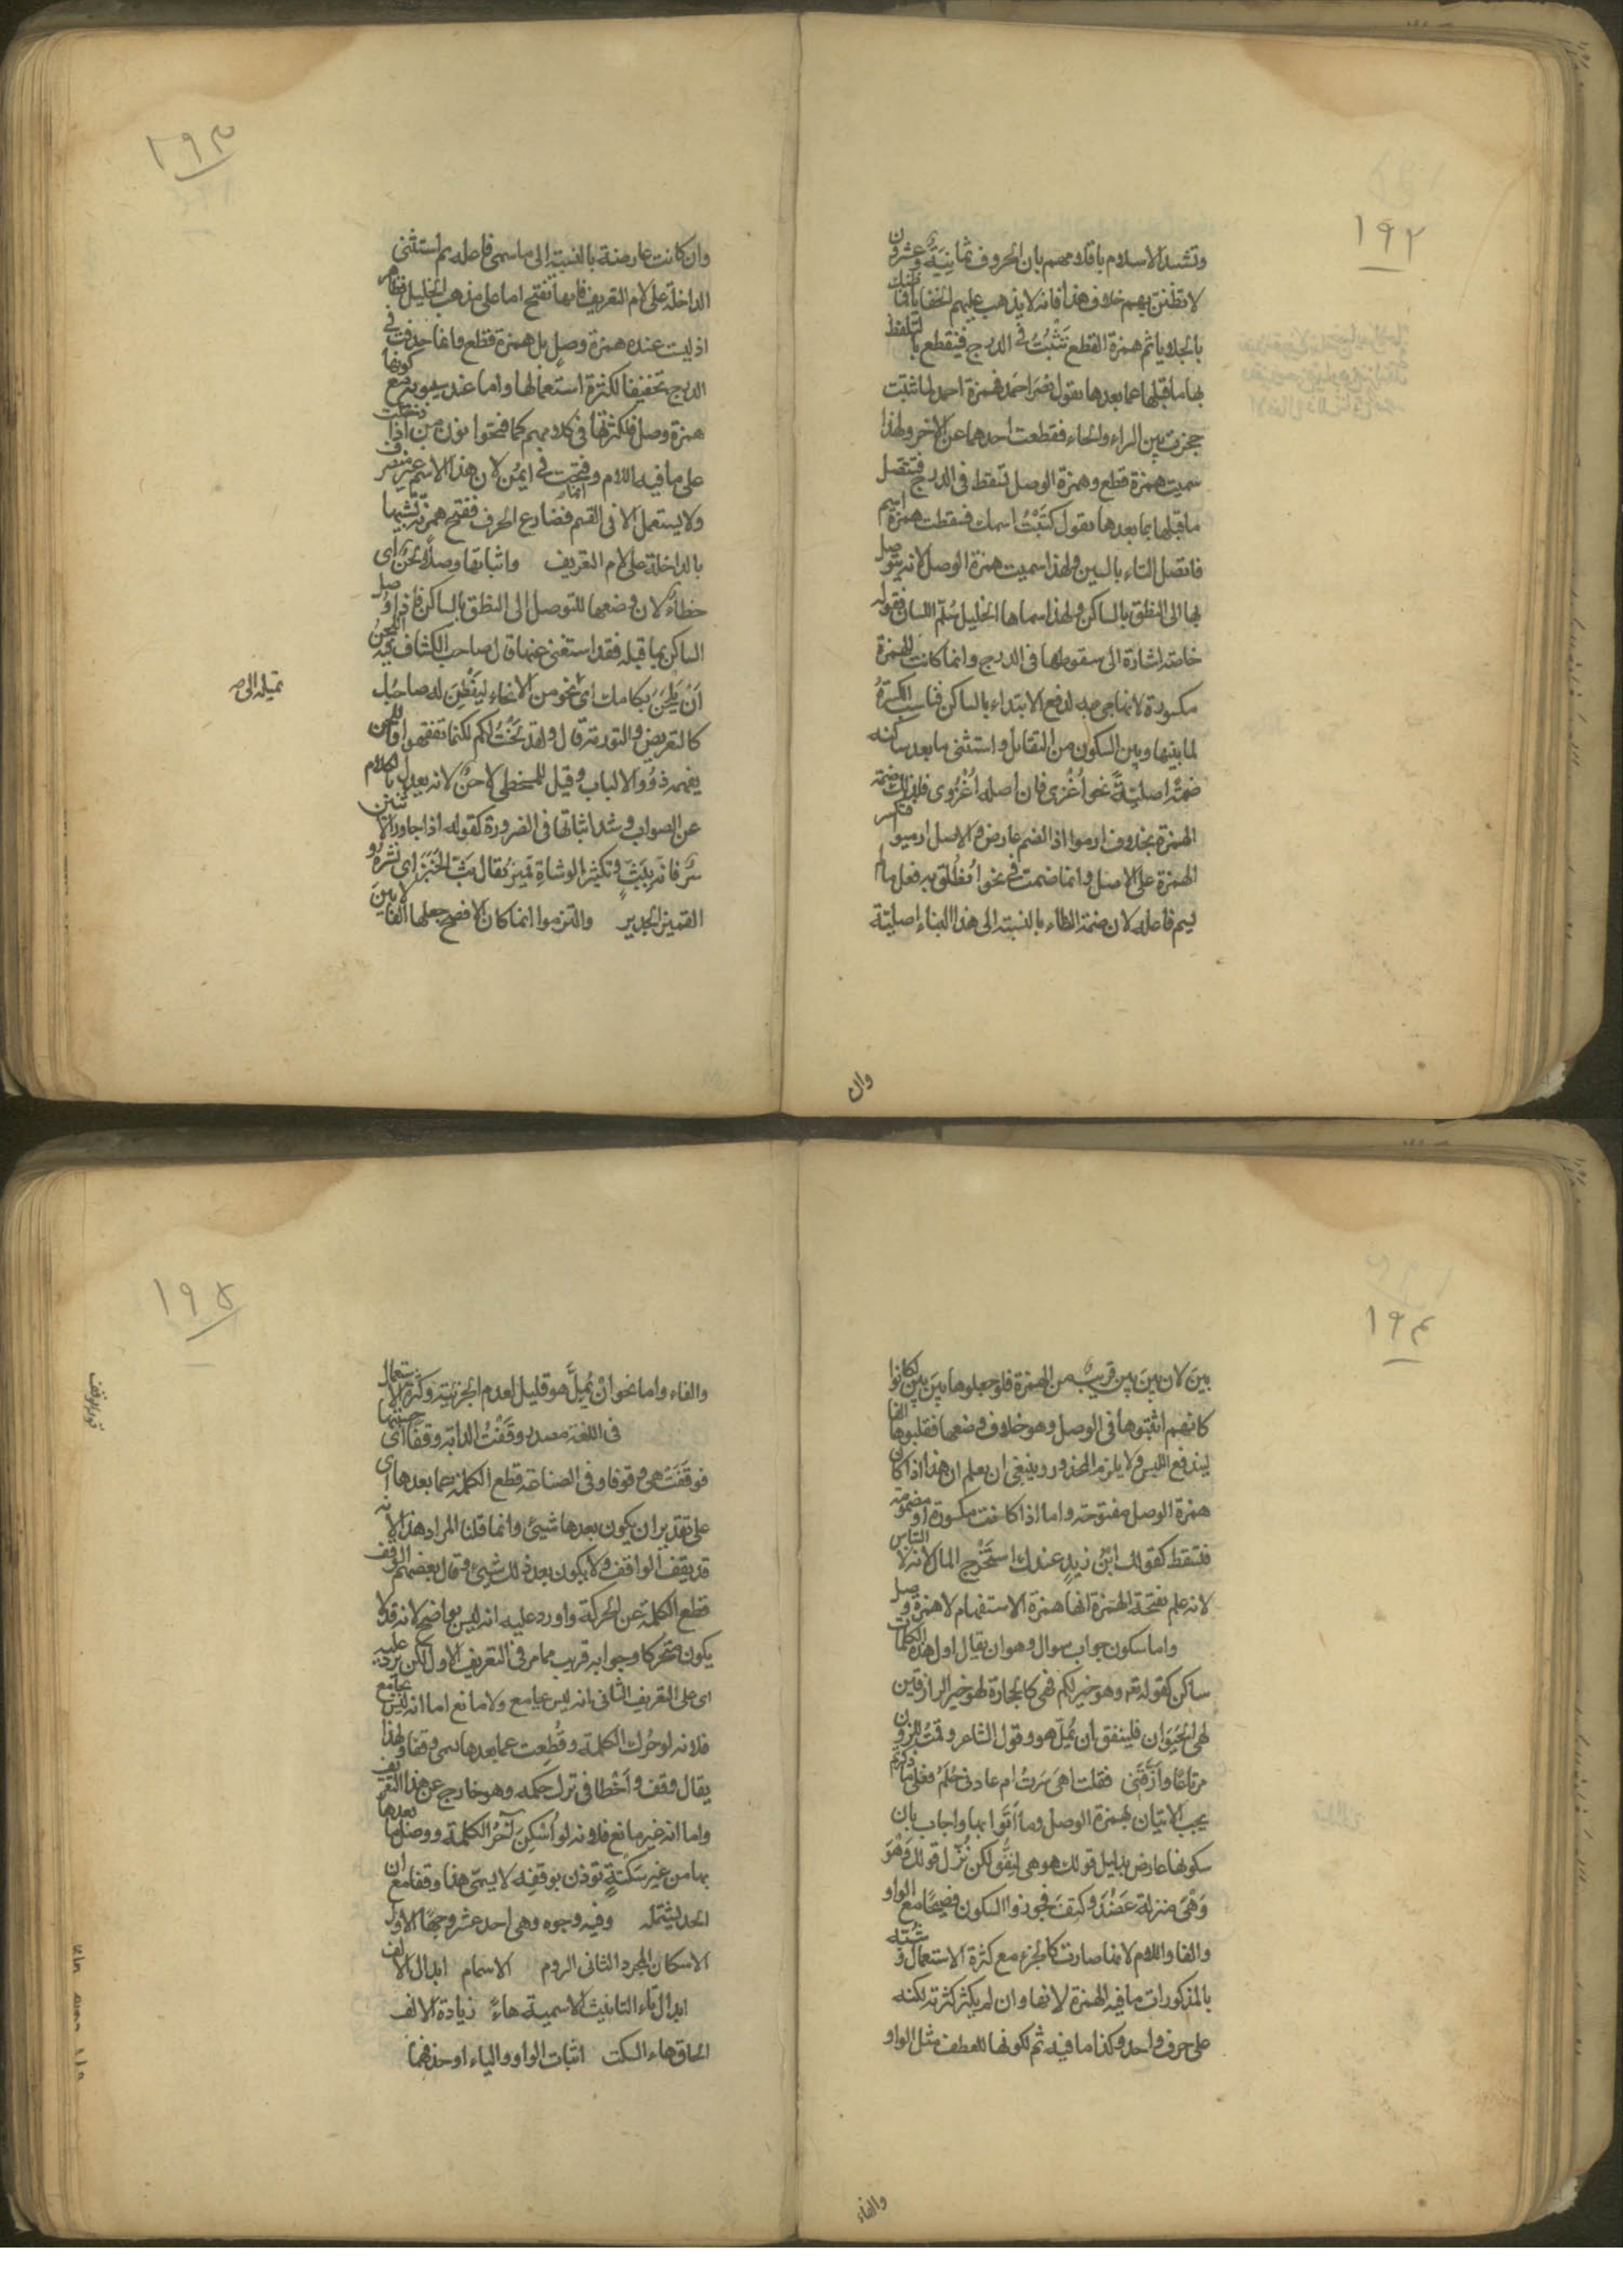 ١٩٢
وتشيد الاسلام باقلامهم بان الحروف ثمانية وعشرون
لا تظنن بهم خلاف هذا فانه لا يذهب عليهم الخفايا فما ظنك
بالجلايا ثم همزة القطع تثبت في الدرج فينقطع بالتلفظ
بها ما قبلها عما بعدها تقول نصر احمد فهمزة احمد لما ثبتت
حجزت بين الراء والحاء فقطعت احدهما عن الاخر ولهذا
سميت همزة قطع وهمزة الوصل تسقط في الدرج فيتصل
ما قبلها بما بعدها تقول كتبت اسمك فسقطت همزة اسم
فاتصل التاء بالسين ولهذا سميت همزة الوصل لانه يتوصل
بها الى النطق بالساكن ولهذا سماها الخليل سلم اللسان فقوله
خاصة اشارة الى سقوطها في الدرج وانما كانت الهمزة
مكسورة لانها جئ به لدفع الابتداء بالساكن فناسب الكسرة
لما بينها وبين السكون من التقابل واستثنى ما بعد ساكنه
ضمة اصلية نحو اغزى فان اصله اغزوى فلذلك ضمت
الهمزة بخلاف ارموا اذ الضم عارض والاصل ارميوا فكسر
الهمزة على الاصل وانما ضمت في نحو انطلق به فعل ما لم
يسم فاعله لان ضمة الطاء بالنسبة الى هذا البناء اصلية
وان
١٩٣
وان كانت عارضة بالنسبة الى ما سمى فاعله ثم استثنى
الداخلة على لام التعريف فانها تفتح اما على مذهب الخليل فظاهر
اذ ليست عنده همزة وصل بل همزة قطع وانما حذفت في
الدرج تخفيفا لكثرة استعمالها واما عند سيبويه مع كونها
همزة وصل فلكثرتها في كلامهم كما فتحوا نون من اذا دخلت
على ما فيه اللام وفتحت في ايمن لان هذا الاسم غير متصرف
ولا يستعمل الا في القسم فضارع الحرف ففتح همزته تشبيها
بالداخلة على لام التعريف واثباتها وصلا لحن اى
خطاء لان وضعها للتوصل الى النطق بالساكن فاذا وصل
الساكن بما قبله فقد استغنى عنها قال صاحب الكشاف فيه اللحن
ان تلحن بكلامك اى تميله الى نحو من الانحاء ليفطن له صاحبك
كالتعريض والتورية قال ولقد لحنت لكم لكيما تفقهوا واللحن
يفهمه ذوو الالباب وقيل للمخطئ لاحن لانه يعدل بالكلام
عن الصواب وشذ اثباتها في الضرورة كقوله اذا جاوز الاثنين
سر فانه ببث وتكثير الوشاة قمين يقال بث الخبر اى نشره و
القمين الجدير والتزموا انما كان الافصح جعلها الفا لا بين
تميله الى صح
١٩٤
بين لان بين بين قريب من الهمزة فلو جعلوها بين بين لكانوا
كانهم اثبتوها في الوصل وهو خلاف وضعها فقلبوها الفا
ليندفع اللبس ولا يلزم المحذور وينبغي ان يعلم ان هذا اذا كان
همزة الوصل مفتوحة واما اذا كانت مكسورة او مضمومة
فتسقط كقولك ابن زيد عندك استخرج المال لانه لا التباس
لانه علم بفتحة الهمزة انها همزة الاستفهام لا همزة وصل
واما سكون جواب سوال وهو ان يقال اول هذه الكلمات
ساكن كقوله تعه وهو خير لكم فهى كالحجارة لهو خير الرازقين
لهى الحيوان فلينفق ان يمل هو وقول الشاعر وقمت للزور
مرتاعا وارقني فقلت اهى سرت ام عادني حلم فعلى ما ذكرتم
يجب الاتيان بهمزة الوصل وما اتوا بها واجاب بان
سكونها عارض بدليل قولك هو هى لينفق لكن نزل قولك وهو
وهى منزلة عضد وكتف فجوزوا السكون فصيحا مع الواو
والفا واللام لانها صارت كالجزء مع كثرة الاستعمال وشبه
بالمذكورات ما فيه الهمزة لانها وان لم يكثر كثرته لكنه
على حرف واحد وكذا ما فيه ثم لكونها للعطف مثل الواو
والفاء
١٩٥
والفاء واما نحو ان يمل هو قليل لعدم الجزئية وكثرة الاستعمال
في اللغة مصدر وقفت الدابة وقفا اى حبستها
فوقفت هى وقوفا وفي الصناعة قطع الكلمة عما بعدها اى
على تقدير ان يكون بعدها شيئ وانما قلنا المراد هذا لانه
قد يقف الواقف ولا يكون بعد ذلك شيئ وقال بعضهم الوقف
قطع الكلمة عن الحركة واورد عليه انه ليس بواضح لانه قد لا
يكون متحركا وجوابه قريب مما مر في التعريف الاول لكن يرد عليه
اى على التعريف الثاني بانه ليس بجامع ولا مانع اما انه ليس بجامع
فلانه لو حرك الكلمة وقطعت عما بعدها سمى وقفا ولهذا
يقال وقف واخطا في ترك حكمه وهو خارج عن هذا التعريف
واما انه غير مانع فلانه لو اسكن آخر الكلمة ووصل ما بعدها
بها من غير سكتة تؤذن بوقفه لا يسمى هذا وقفا مع ان
الحد يشتمله وفيه وجوه وهى احد عشر وجها الاول
الاسكان المجرد الثاني الروم الاشمام ابدال الالف
ابدال تاء التانيث الاسمية هاء زيادة الالف
الحاق هاء السكت اثبات الواو والياء او حذفهما